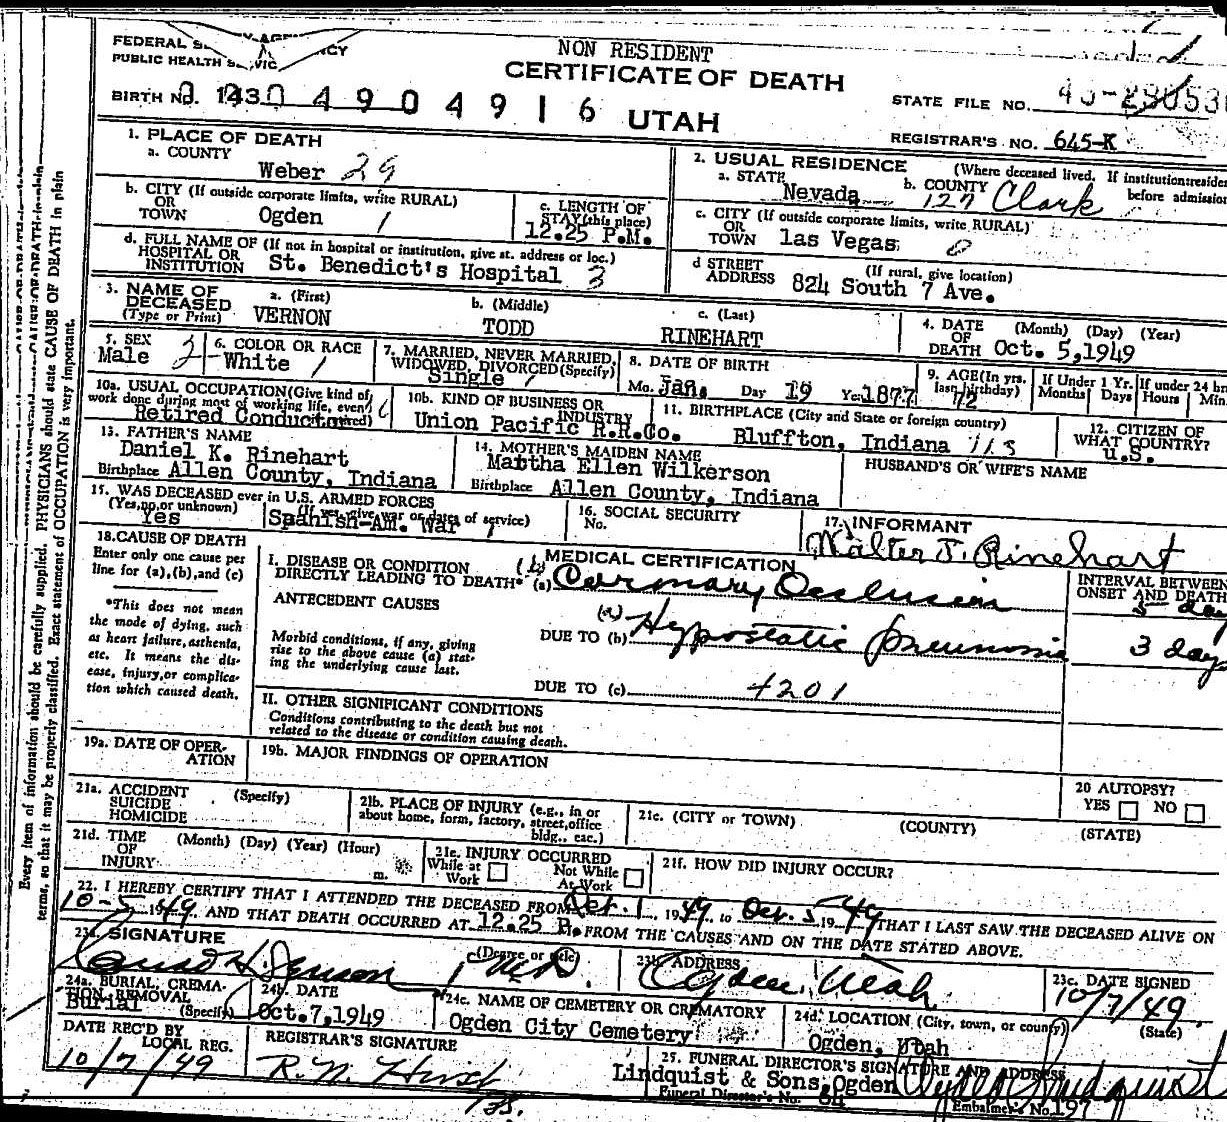 NON RESIDENT
CERTIFICATE OF DEATH
UTAH
FEDERAL
PUBLIC HEALTH
BIRTH NO.
4 9 0 4 9 1 6
STATE FILE NO.
REGISTRAR'S NO. 645-K
1. PLACE OF DEATH
a. COUNTY
Weber 29
b. CITY (If outside corporate limits, write RURAL)
OR
TOWN Ogden 1
c. LENGTH OF
STAY (this place)
12.25 P.M.
d. FULL NAME OF (If not in hospital or institution, give st. address or loc.)
HOSPITAL OR
INSTITUTION St. Benedict's Hospital 3
2. USUAL RESIDENCE (Where deceased lived. If institution: residen
before admission
a. STATE Nevada b. COUNTY 127 Clark
c. CITY (If outside corporate limits, write RURAL)
OR
TOWN las Vegas
d STREET (If rural, give location)
ADDRESS 824 South 7 Ave.
3. NAME OF
DECEASED
(Type or Print)
a. (First) VERNON
b. (Middle) TODD
c. (Last) RINEHART
4. DATE (Month) (Day) (Year)
OF
DEATH Oct. 5,1949
5. SEX
Male 2
6. COLOR OR RACE
White 1
7. MARRIED, NEVER MARRIED,
WIDOWED, DIVORCED (Specify)
Single 1
8. DATE OF BIRTH
Mo. Jan. Day 19 Yr. 1877
9. AGE (In yrs.
last birthday)
72
If Under 1 Yr.
Months Days
If under 24 hr
Hours Min.
10a. USUAL OCCUPATION (Give kind of
work done during most of working life, even
Retired Conductor
10b. KIND OF BUSINESS OR
INDUSTRY
Union Pacific R.R.Co.
11. BIRTHPLACE (City and State or foreign country)
Bluffton, Indiana
12. CITIZEN OF
WHAT COUNTRY?
U.S.
13. FATHER'S NAME
Daniel K. Rinehart
Birthplace Allen County, Indiana
14. MOTHER'S MAIDEN NAME
Martha Ellen Wilkerson
Birthplace Allen County, Indiana
HUSBAND'S OR WIFE'S NAME
15. WAS DECEASED ever in U.S. ARMED FORCES
(Yes, no, or unknown) (If yes, give war or dates of service)
Yes Spanish-Am. War 1
16. SOCIAL SECURITY
No.
17. INFORMANT
Walter J. Rinehart
18. CAUSE OF DEATH
Enter only one cause per
line for (a), (b), and (c)
*This does not mean
the mode of dying, such
as heart failure, asthenia,
etc. It means the dis-
ease, injury, or complica-
tion which caused death.
MEDICAL CERTIFICATION
I. DISEASE OR CONDITION
DIRECTLY LEADING TO DEATH* (a) (b) Coronary Occlusion
ANTECEDENT CAUSES
Morbid conditions, if any, giving
rise to the above cause (a) stat-
ing the underlying cause last.
DUE TO (b) (a) Hypostatic pneumonia
DUE TO (c) 4201
INTERVAL BETWEEN
ONSET AND DEATH
5 day
3 days
II. OTHER SIGNIFICANT CONDITIONS
Conditions contributing to the death but not
related to the disease or condition causing death.
19a. DATE OF OPER-
ATION
19b. MAJOR FINDINGS OF OPERATION
20 AUTOPSY?
YES NO
21a. ACCIDENT (Specify)
SUICIDE
HOMICIDE
21b. PLACE OF INJURY (e.g., in or
about home, form, factory, street, office
bldg., etc.)
21c. (CITY or TOWN) (COUNTY) (STATE)
21d. TIME (Month) (Day) (Year) (Hour)
OF
INJURY m.
21e. INJURY OCCURRED
While at Not While
Work At Work
21f. HOW DID INJURY OCCUR?
22. I HEREBY CERTIFY THAT I ATTENDED THE DECEASED FROM Oct. 1, 1949, to Oct. 5 1949 THAT I LAST SAW THE DECEASED ALIVE ON
10-5 1949 AND THAT DEATH OCCURRED AT 12.25 P.M. FROM THE CAUSES AND ON THE DATE STATED ABOVE.
SIGNATURE (Degree or title)
M.D.
23b. ADDRESS
Ogden, Utah
23c. DATE SIGNED
10/7/49.
24a. BURIAL, CREMA-
TION, REMOVAL
Burial (Specify)
24b. DATE
Oct.7,1949
24c. NAME OF CEMETERY OR CREMATORY
Ogden City Cemetery
24d. LOCATION (City, town, or county) (State)
Ogden, Utah
DATE REC'D BY
LOCAL REG.
10/7/49
REGISTRAR'S SIGNATURE
R. N. Hirst
25. FUNERAL DIRECTOR'S SIGNATURE AND ADDRESS
Lindquist & Sons, Ogden
Funeral Director's No. 64
Embalmer's No. 197
Every item of information should be carefully supplied. PHYSICIANS should state CAUSE OF DEATH in plain
terms, so that it may be properly classified. Exact statement of OCCUPATION is very important.